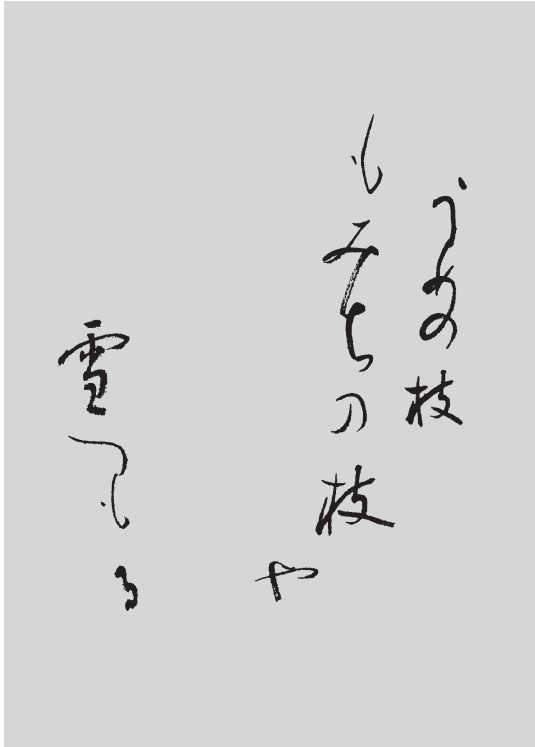 うめの枝
もみちの枝
や
雪つもる